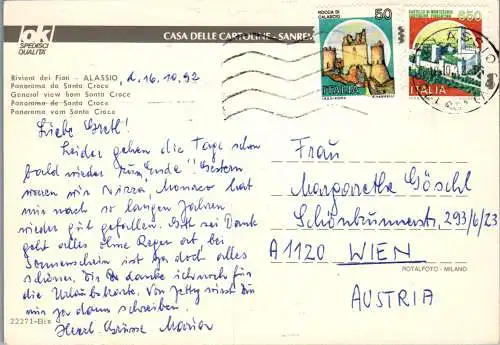 ok
SPEDISCI
QUALITA'
CASA DELLE CARTOLINE - SANREMO
Riviera dei Fiori - ALASSIO, d. 16.10.92
Panorama da Santa Croce
General view from Santa Croce
Panorama de Santa Croce
Panorama vom Santa Croce
Liebe Gretl!
Leider gehen die Tage schon
bald wieder zum Ende! Gestern
waren wir Nizza Monaco hat
mir nach so langen Jahren
wieder gut gefallen. Gott sei Dank
geht alles ohne Regen ab, bei
Sonnenschein ist ja doch alles
schöner. Dir danke ich noch für
die Urlaubskarte. Von Jetty wirst Du
mir ja dann schreiben.
Herzl. Grüsse Marion
22271-Bix
ROCCA DI
CALASCIO
50
ITALIA
CASTELLO DI MONTECCHIO
850
ITALIA
ALASSIO
Frau
Margarethe Göschl
Schönbrunnerstr. 293/6/23
A 1120 WIEN
ROTALFOTO - MILANO
AUSTRIA